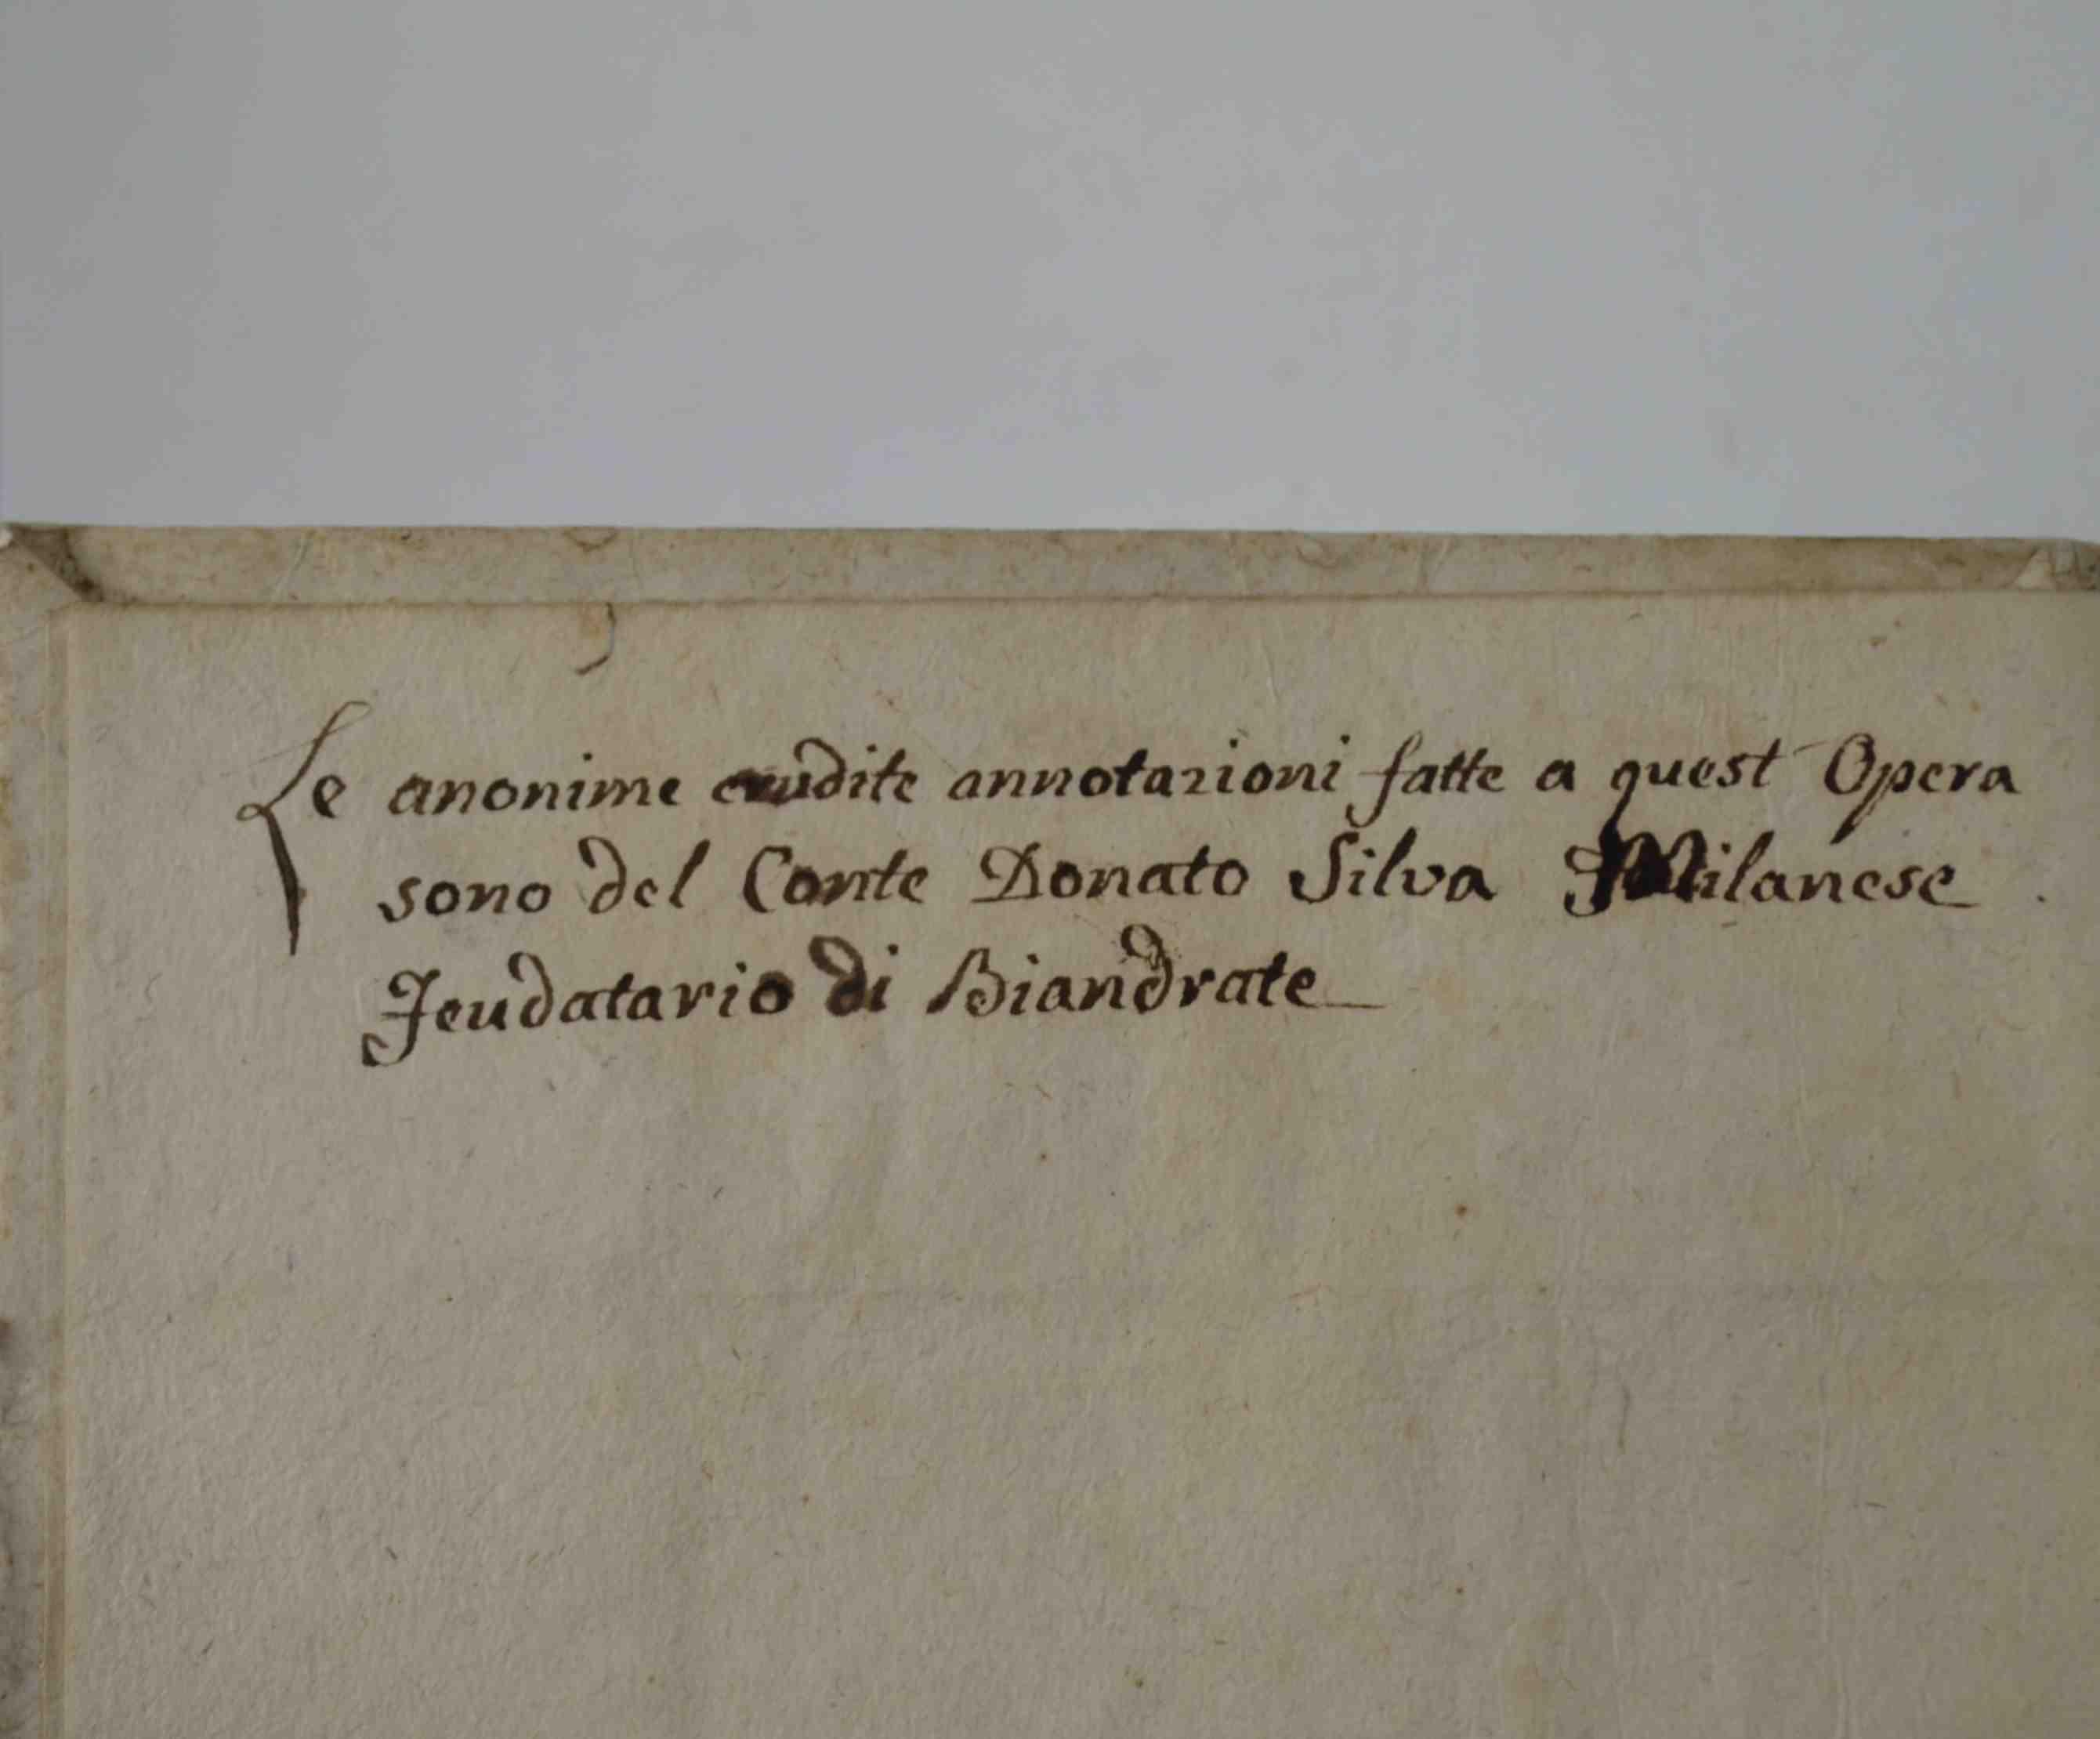 Le anonime erudite annotazioni fatte a quest Opera
sono del Conte Donato Silva Milanese
Feudatario di Biandrate